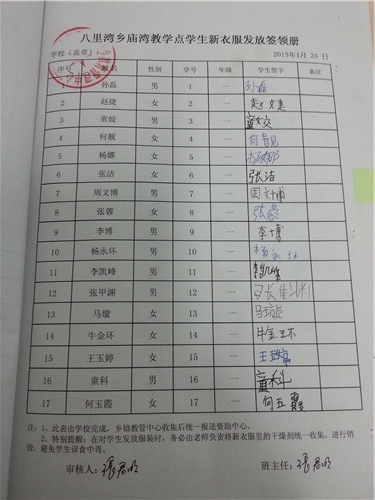 八里湾乡庙湾教学点学生新衣服发放签领册
学校（盖章） 2013年1月24日
序号 姓名 性别 学号 年级 学生签字 备注
1 孙磊 男 1 一 孙磊
2 赵捷 女 2 一 赵捷
3 童姣 男 3 一 童姣
4 何靓 女 4 一 何靓
5 杨娜 女 5 一 杨娜
6 张洁 女 6 一 张洁
7 周文博 男 7 一 周文博
8 张蓉 女 8 一 张蓉
9 李博 男 9 一 李博
10 杨永环 男 10 一 杨永环
11 李凯峰 男 11 一 李凯峰
12 张甲渊 男 12 一 张甲渊
13 马璇 女 13 一 马璇
14 牛金环 女 14 一 牛金环
15 王玉婷 女 15 一 王玉婷
16 童科 男 16 一 童科
17 何玉霞 女 17 一 何玉霞
注：1、此表由学校完成，乡镇教管中心收后统一报送资助中心。
2、特别提醒：在对学生发放服装时，务必由老师负责将新衣服里的干燥剂统一收集，进行销
毁，避免学生误食中毒。
审核人： 班主任：